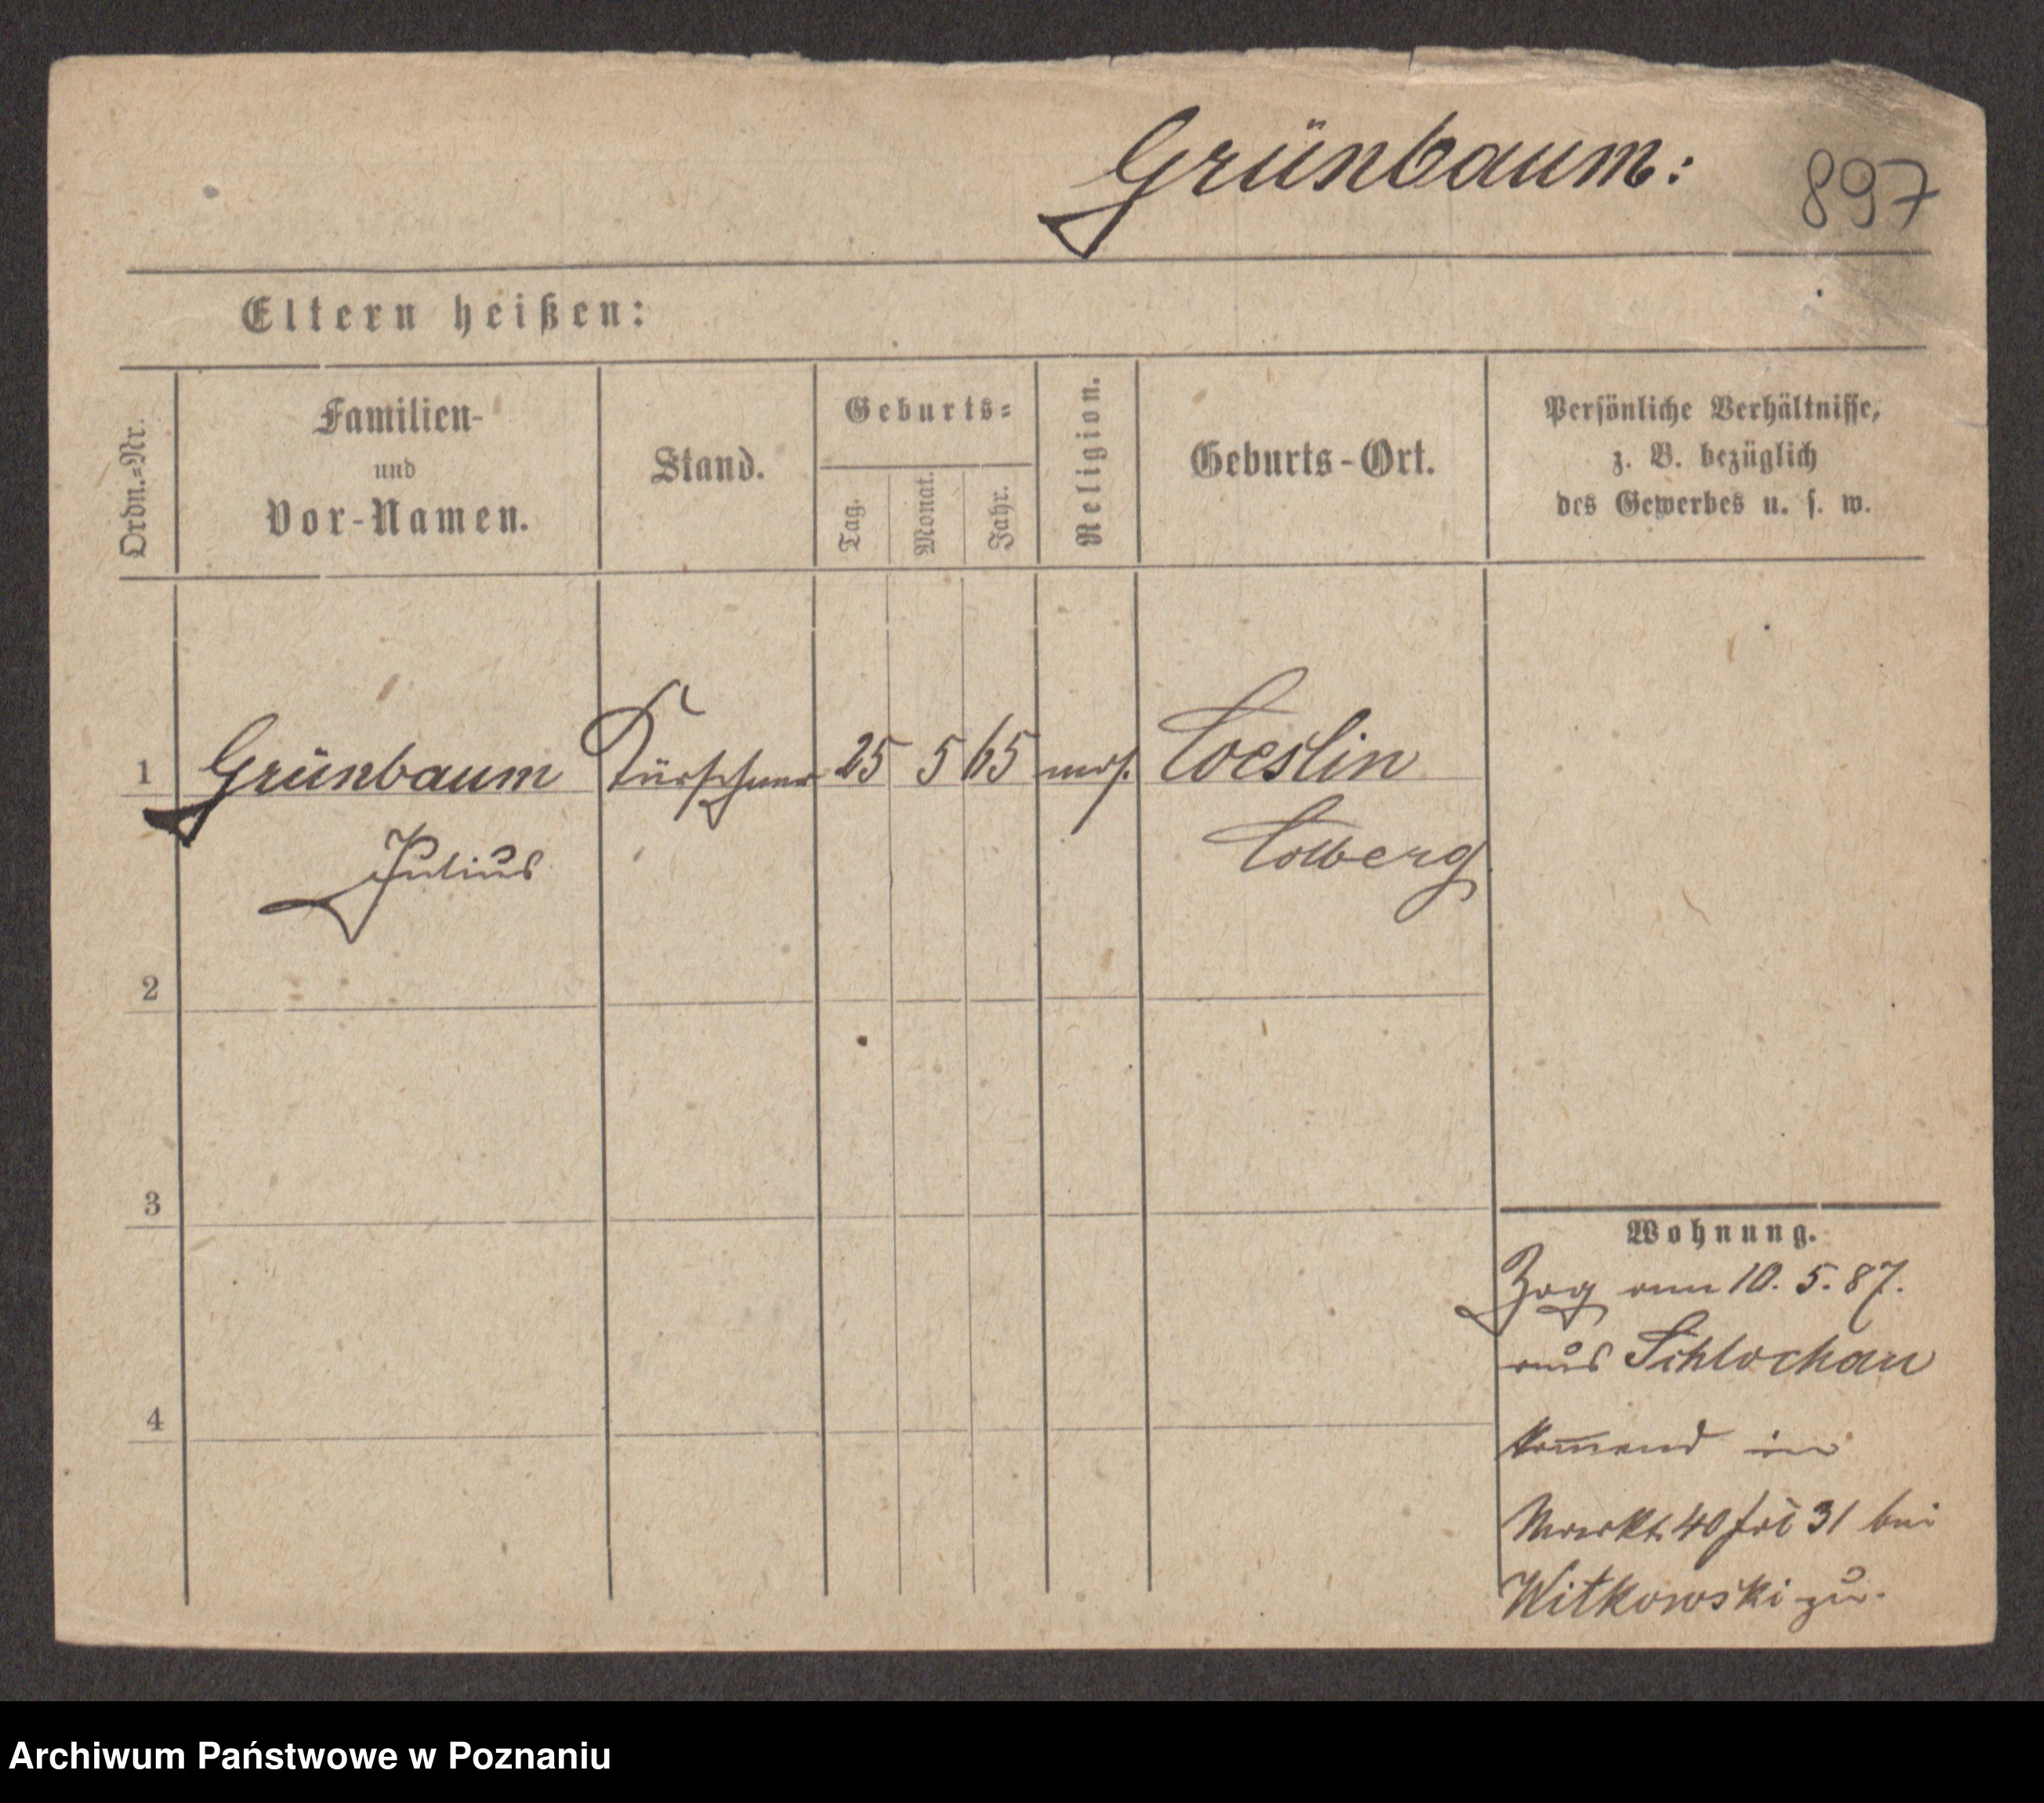 Grünbaum:
897
Eltern heißen:
Ordn.=Nr.
Familien-
und
Vor-Namen.
Stand.
Geburts=
Tag.
Monat.
Jahr.
Religion.
Geburts-Ort.
Persönliche Verhältnisse,
z. B. bezüglich
des Gewerbes u. s. w.
1 Grünbaum Kürschner 25 5 65 mos. Coeslin
Julius Colberg
2
3
4
Wohnung.
Zog am 10. 5. 87.
aus Schlochau
kommend in
Markt 40 bei
Witkowski zu.
Archiwum Państwowe w Poznaniu